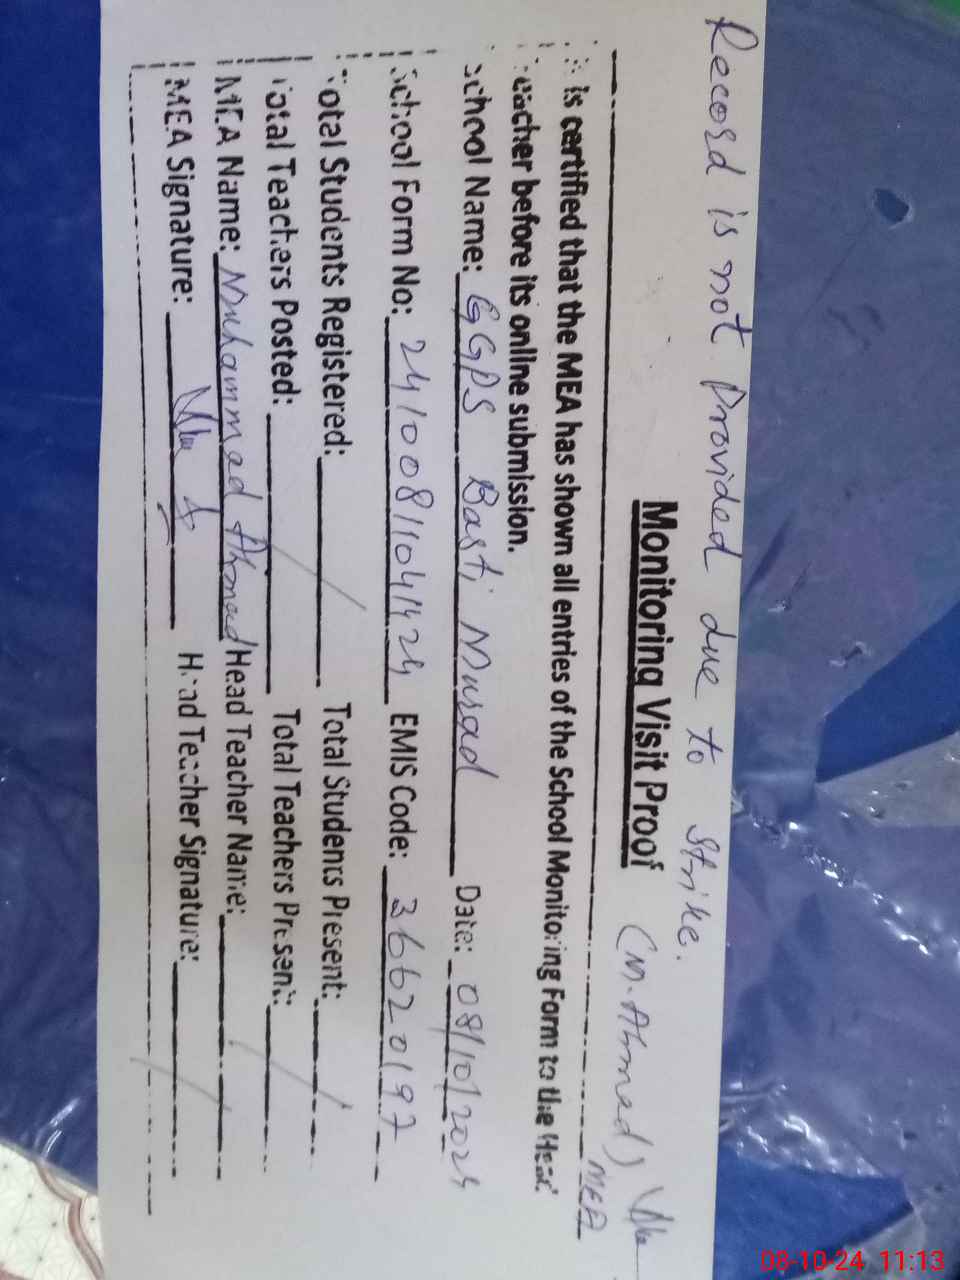 Record is not Provided due to strike.
Monitoring Visit Proof (M. Ahmad)
MEA
is certified that the MEA has shown all entries of the School Monitoring Form to the Head
eacher before its online submission.
School Name: GGPS Basti Murad Date: 08/10/2024
School Form No: 24100811041424 EMIS Code: 36620197
Total Students Registered: Total Students Present:
Total Teachers Posted: Total Teachers Present:
MEA Name: Muhammad Ahmad Head Teacher Name:
MEA Signature: Head Teacher Signature:
08-10-24 11:13